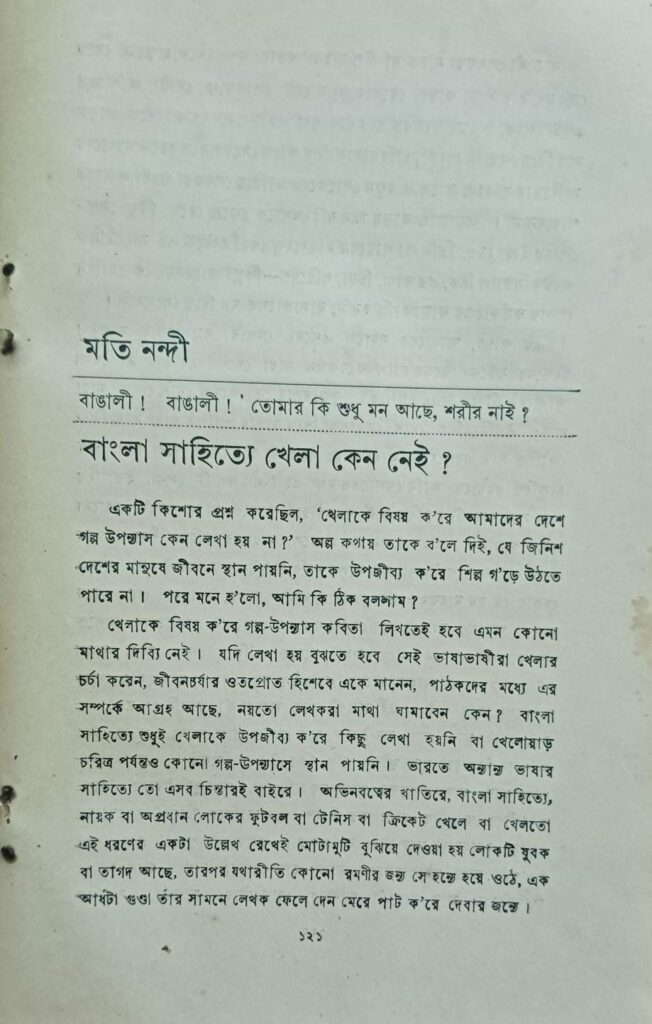 মতি নন্দী
বাঙালী ! বাঙালী ! ' তোমার কি শুধু মন আছে, শরীর নাই ?
বাংলা সাহিত্যে খেলা কেন নেই ?
একটি কিশোর প্রশ্ন করেছিল, ‘খেলাকে বিষয় ক’রে আমাদের দেশে
গল্প উপন্যাস কেন লেখা হয় না ?’ অল্প কথায় তাকে ব’লে দিই, যে জিনিশ
দেশের মানুষে জীবনে স্থান পায়নি, তাকে উপজীব্য ক’রে শিল্প গ’ড়ে উঠতে
পারে না। পরে মনে হ’লো, আমি কি ঠিক বললাম ?
খেলাকে বিষয় ক’রে গল্প-উপন্যাস কবিতা লিখতেই হবে এমন কোনো
মাথার দিব্যি নেই। যদি লেখা হয় বুঝতে হবে সেই ভাষাভাষীরা খেলার
চর্চা করেন, জীবনচর্যার ওতপ্রোত হিশেবে একে মানেন, পাঠকদের মধ্যে এর
সম্পর্কে আগ্রহ আছে, নয়তো লেখকরা মাথা ঘামাবেন কেন ? বাংলা
সাহিত্যে শুধুই খেলাকে উপজীব্য ক’রে কিছু লেখা হয়নি বা খেলোয়াড়
চরিত্র পর্যন্তও কোনো গল্প-উপন্যাসে স্থান পায়নি। ভারতে অন্যান্য ভাষার
সাহিত্যে তো এসব চিন্তারই বাইরে। অভিনবত্বের খাতিরে, বাংলা সাহিত্যে,
নায়ক বা অপ্রধান লোকের ফুটবল বা টেনিস বা ক্রিকেট খেলে বা খেলতো
এই ধরণের একটা উল্লেখ রেখেই মোটামুটি বুঝিয়ে দেওয়া হয় লোকটি যুবক
বা তাগদ আছে, তারপর যথারীতি কোনো রমণীর জন্য সে হন্যে হয়ে ওঠে, এক
আধটা গুণ্ডা তাঁর সামনে লেখক ফেলে দেন মেরে পাট ক’রে দেবার জন্যে।
১২১